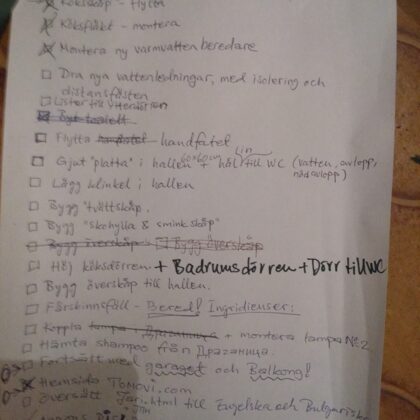 Köksskåp - flytta
Köksfläkt - montera
Montera ny varmvattenberedare
Dra nya vattenledningar, med isolering och
distansfästen
Lister till ytterdörren
Byt toalett
Flytta handfatet
Gjut "platta" i hallen 60x60cm + hål in till WC (vatten, avlopp,
nödavlopp)
Lägg klinkel i hallen
Bygg tvättskåp.
Bygg "skohylla & sminkskåp"
Bygg överskåp Bygg överskåp
Höj köksdörren + Badrumsdörren + Dörr till WC
Bygg överskåp till hallen.
Fårskinnsfäll - Bered! Ingridienser:
Koppla lampa i Драганица + montera lampa № 2
Hämta shampoo från Драганица.
Fortsätt med garaget och Balkong!
Hemsida Tomovi.com
översätt .html till Engelska och Bulgariska